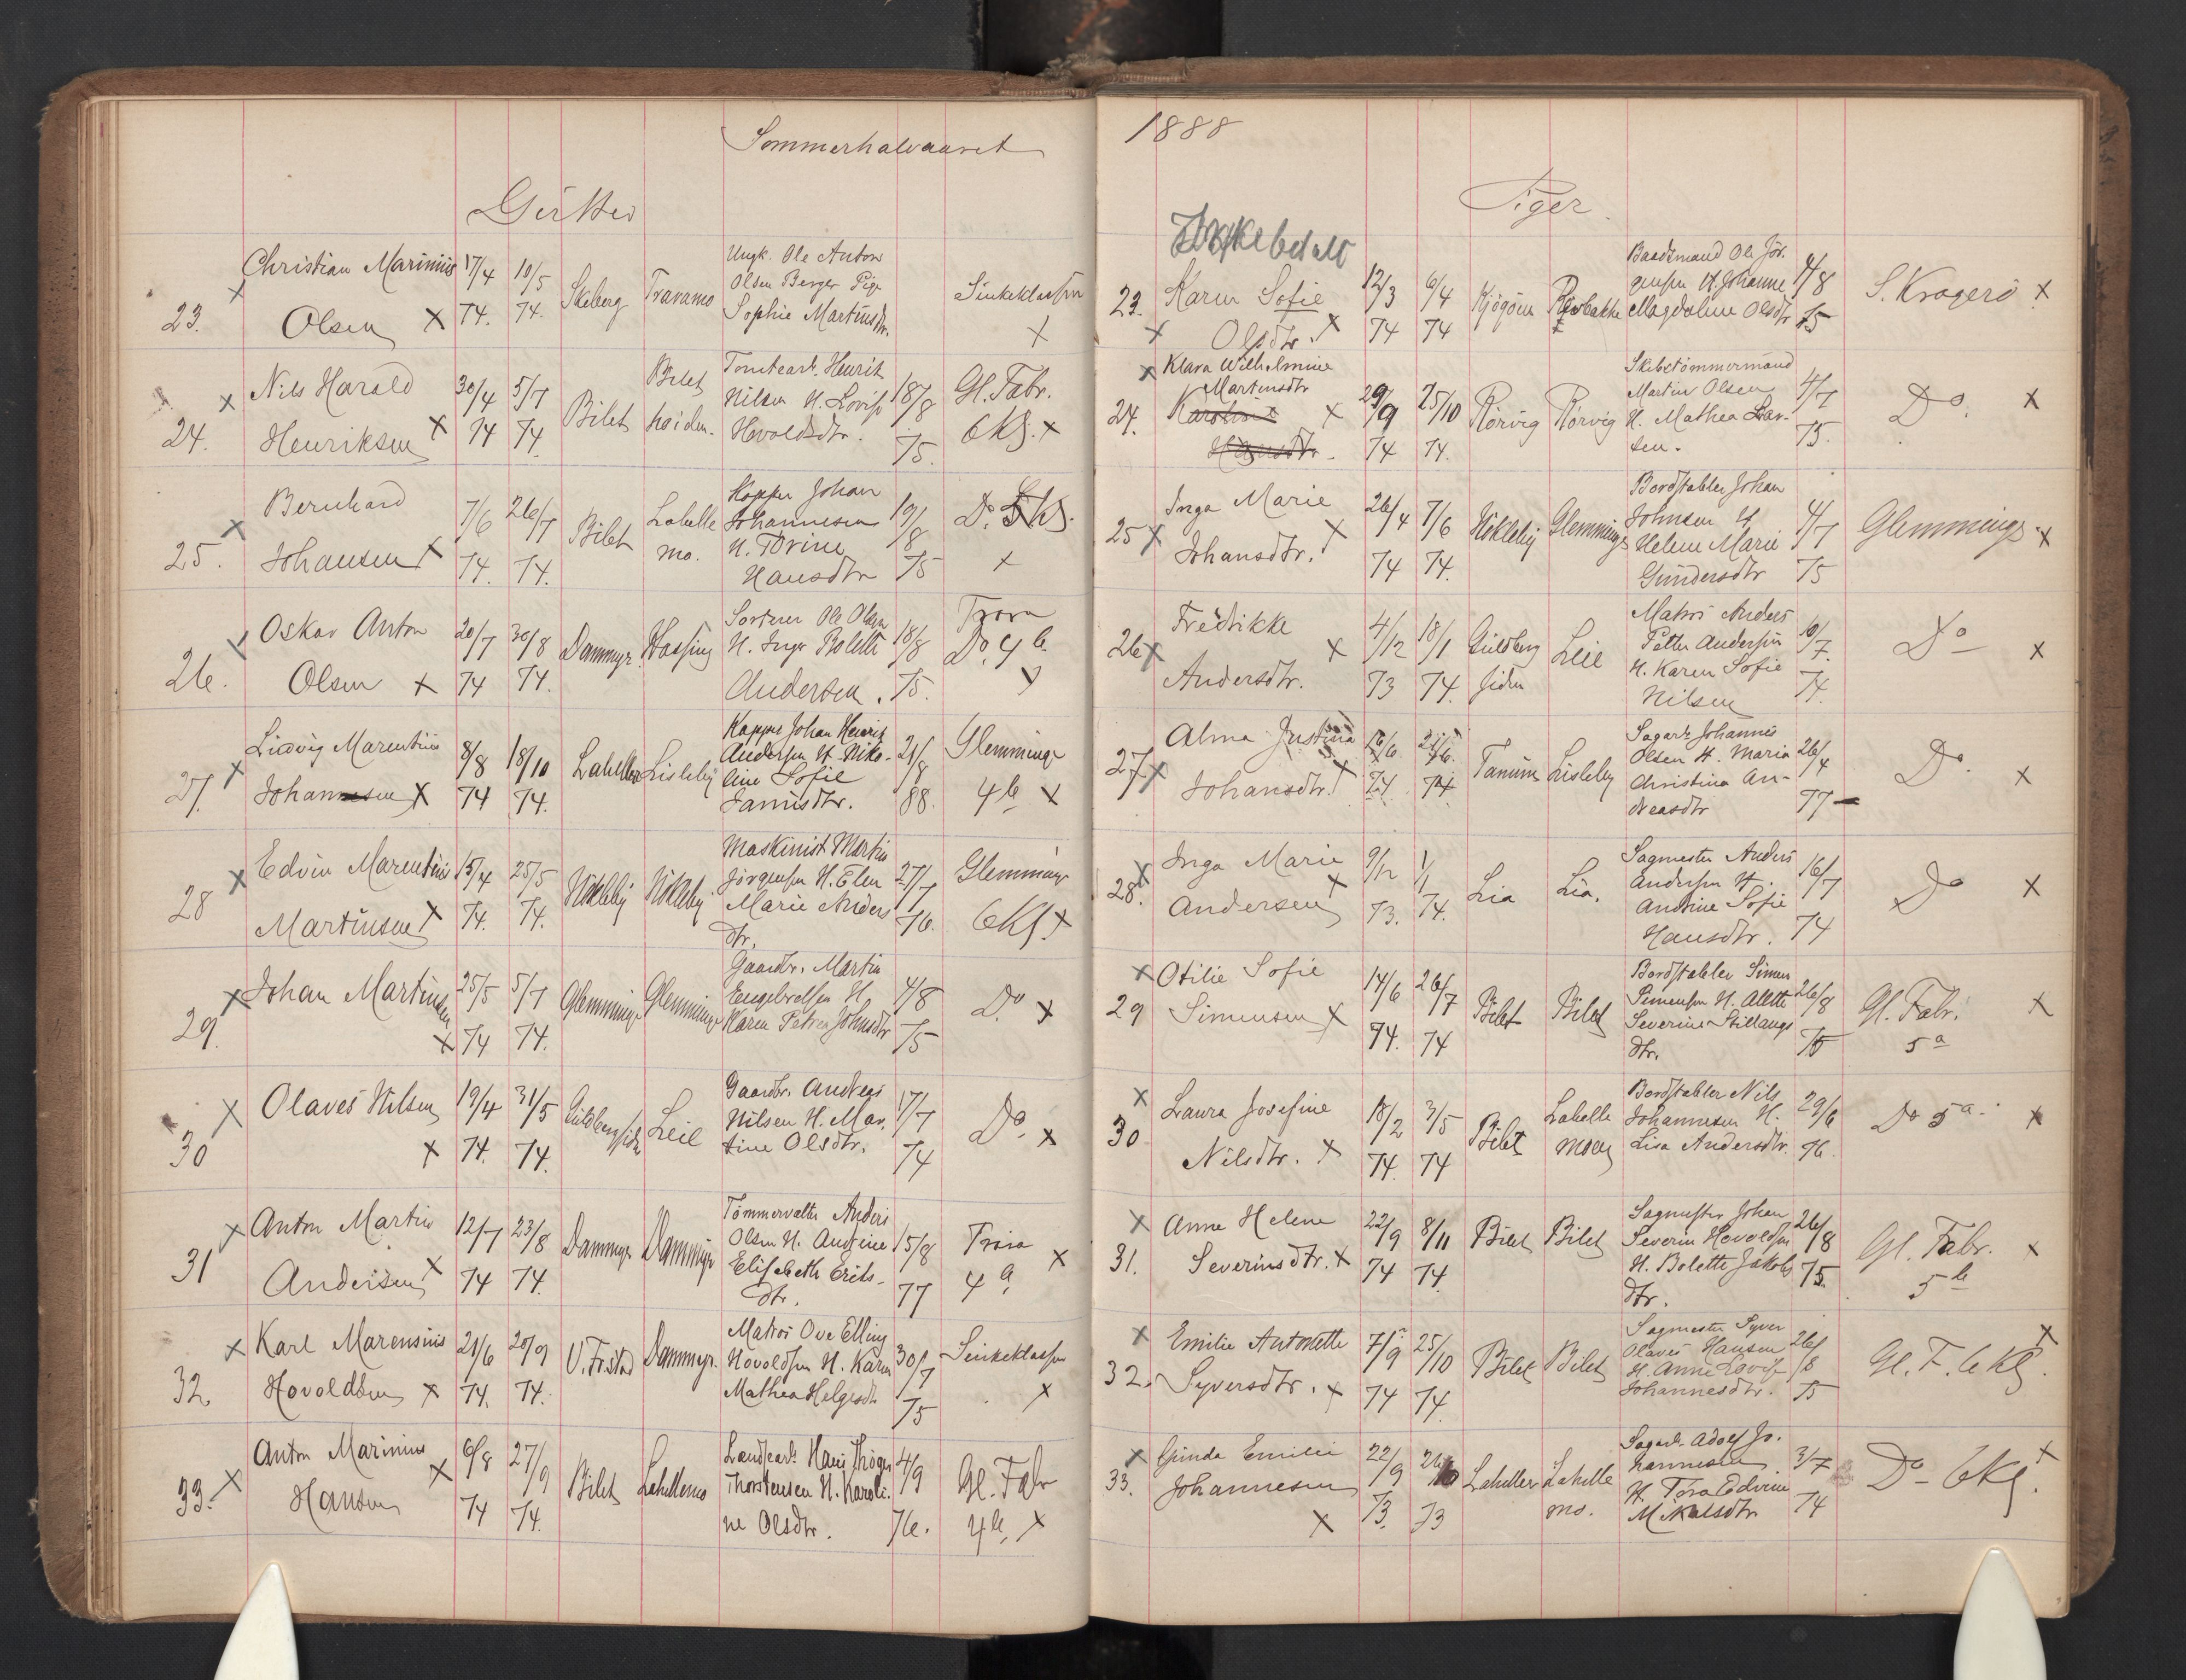 Sommerhalvaaret
Gutter
23.
Christian Marinius
Olsen
17/4 74.
10/5 74.
Skeberg
Travamo
Ungk. Ole Anton
Olsen Berger Pige
Sophie Martinsdtr.
Sinkeklassen
24.
Nils Harald
Henriksen
30/4 74
5/7 74.
Bilet
Bilet
heiden.
Tomtearb. Henrik
Nilsen H. Lovise
Hovoldsdtr.
18/8 75.
Gl. Fabr.
6 Kl.
25.
Bernhard
Johansen
7/6 74.
26/7 74.
Bilet
Lahelle
mo.
Kopper Johan
Johannesen
H. Torine
Hansdtr
19/8 75
Do. Kl.
26.
Oskar Anton
Olsen
20/7 74
30/8 74.
Dammyr.
Hassing
Sorterer Ole Olsen
H. Inger Bolette
Andersen.
18/8 75.
Trara
Do. 4 b.
27.
Ludvig Marentius
Johannesen
8/8 74
18/10 74.
Laheller
Lisleby
Kopper Johan Henrik
Andersen H. Niko-
line Sofie
Janusdtr.
21/8 88.
Glemminge
4 b
28
Edvin Marentius
Martinsen
15/4 74.
25/5 74.
Nökleby
Nökleby
Maskinist Martin
Jörgensen H. Elen
Marie Anders
dtr.
27/7 76.
Glemminge
6 Kl.
29.
Johan Martinsen
25/5 74
5/7 74.
Glemminge
Glemminge
Gaardbr. Martin
Engebretsen H.
Karen Petrea Johnsdtr
4/8 75
Do.
30
Olaves Nilsen
19/4 74.
31/5 74.
Guldbergsiden
Leie
Gaardbr. Andreas
Nilsen H. Mar.
tine Olsdtr.
17/7 74
Do.
31
Anton Martin
Andersen
12/7 74
23/8 74.
Dammyr
Dammyr
Tömmervalter Anders
Olsen H. Andrine
Elisabeth Eriks-
dtr.
15/8 77
Trara
4 a.
32.
Karl Marensius
Hovoldsen
21/6 74.
20/9 74.
V. Frstad
Dammyr.
Matros Ove Elling
Hovoldsen H. Karen
Mathea Helgesdtr
30/7 75
Sinkeklassen
33.
Anton Marinius
Hansen
6/8 74
27/9 74.
Bilet
Lahellemo
Landearb. Hans Thöger
Thorstensen H. Karoli-
ne Olsdtr.
4/9 76.
Gl. Fabr
4 b.
1888
Piger.
Ikke betalt
23.
Karen Sofie
Olsdtr.
12/3 74
6/4 74
Kjögöen
Rävbakke
Baadsmand Ole Jör.
gensen H. Johanne
Magdaline Olsdtr
4/8 75
S. Kragerö
24.
Klara Wilhelmine
Martinsdtr
29/9 74
25/10 74.
Rörvig
Rörvig
Skibstömmermand
Martin Olsen
H. Mathea Lar-
sen.
4/7 75.
Do.
25
Inga Marie
Johansdtr.
26/4 74
7/6 74.
Nökleby
Glemminge
Bordstabler Johan
Johnsen H.
Helene Marie
Gundersdtr
4/7 75
Glemminge
26
Fredrikke
Andersdtr.
4/12 73
18/1 74.
Guldberg
siden
Leie
Matros Anders
Petter Andersen
H. Karen Sofie
Nilsen
10/7. 74.
Do
27
Alma Justina
Johansdtr.
74
74
Tanum
Lisleby
Sagarb Johannes
Olsen H. Maria
Christina An-
dreasdtr
26/4 77
Do.
28.
Inga Marie
Andersen
9/12 73.
1/1 74.
Lia
Lia.
Sagmester Anders
Andersen H.
Andrine Sofie
Hansdtr.
16/7 74
Do
29
Otilie Sofie
Simensen
14/6 74.
26/7 74
Bilet
Bilet
Bordstabler Simen
Simensen H. Alette
Severine Stillaugs
dtr.
26/8 75
Gl. Fabr.
5 a
30
Laura Josefine
Nilsdtr.
18/2 74.
3/5 74
Bilet
Lahelle
moen
Bordstabler Nils
Johannesen H.
Lisa Andersdtr.
29/6 76.
Do 5 a.
31.
Anne Helene
Severinsdtr.
22/9 74
8/11 74.
Bilet
Bilet
Sagmester Johan
Severin Hovoldsen
H. Bolette Jakobs
dtr.
26/8 75.
Gl. Fabr.
5 b
32.
Emilie Antonette
Syversdtr.
7/9 74
25/10 74.
Bilet
Bilet
Sagmester Syver
Olaves Hansen
H. Anne Lovise
Johannesdtr.
26/8 75
Gl. F. 6 Kl.
33.
Gunda Emilie
Johannesen
22/9 73.
73
Laheller
Lahelle
mo.
Sagarb. Adolf Jo.
hannesen
H. Tora Edvine
Mikalsdtr
3/7 74
Do - 6 Kl.